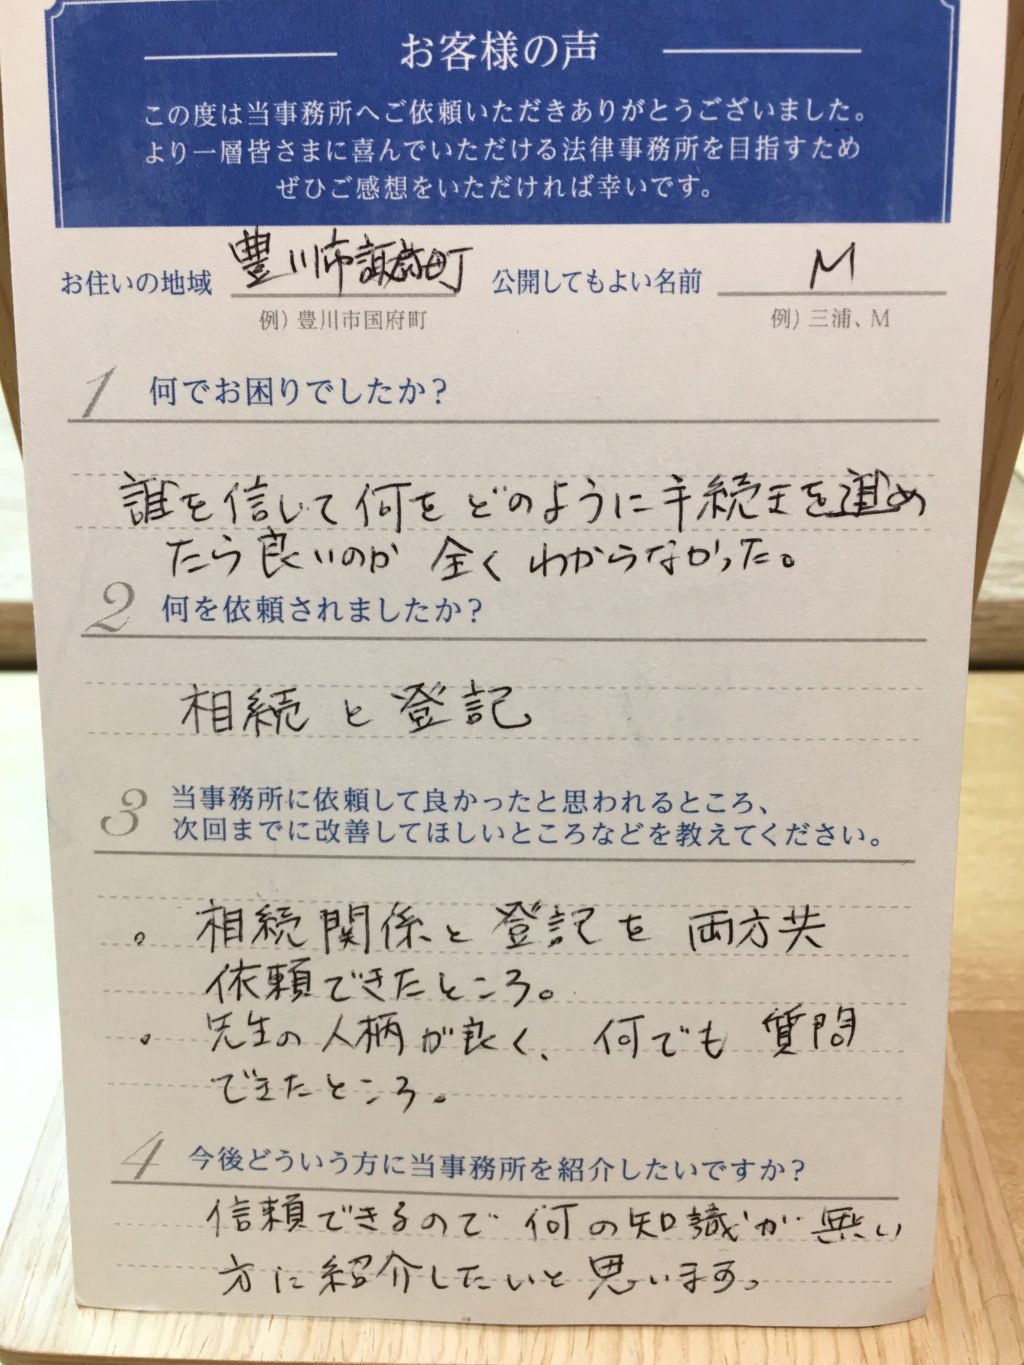 お客様の声
この度は当事務所へご依頼いただきありがとうございました。
より一層皆さまに喜んでいただける法律事務所を目指すため
ぜひご感想をいただければ幸いです。
お住いの地域 豊川市諏訪町 公開してもよい名前 M
例）豊川市国府町 例）三浦、M
1 何でお困りでしたか？
誰を信じて何をどのように手続きを進め
たら良いのか 全くわからなかった。
2 何を依頼されましたか？
相続と登記
3 当事務所に依頼して良かったと思われるところ、
次回までに改善してほしいところなどを教えてください。
。相続関係と登記を両方共
依頼できたところ。
。先生の人柄が良く、何でも質問
できたところ。
4 今後どういう方に当事務所を紹介したいですか？
信頼できるので何の知識が無い
方に紹介したいと思います。